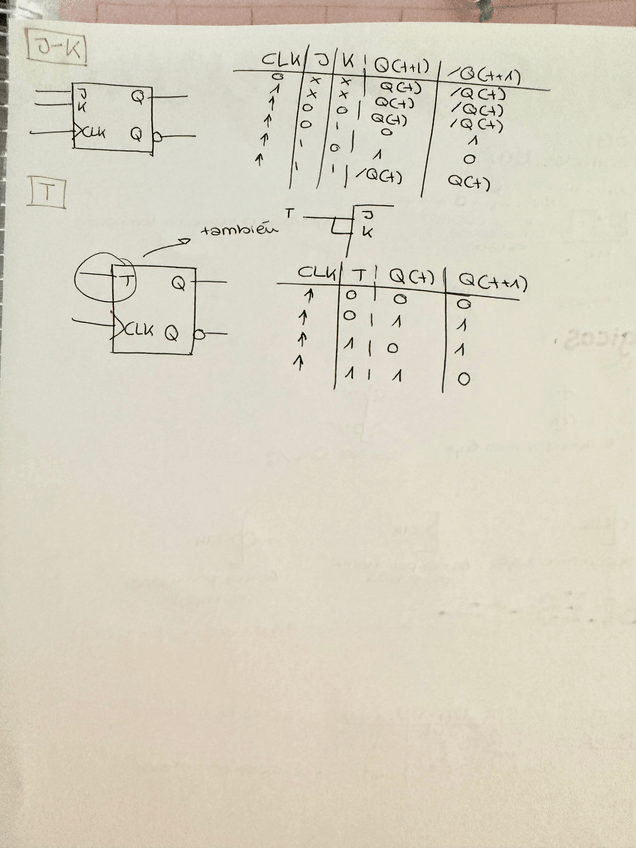 J-K
CLK J K Q(t+1) /Q(t+1)
0 x x Q(t) /Q(t)
1 x x Q(t) /Q(t)
↑ 0 0 Q(t) /Q(t)
↑ 0 1 0 1
↑ 1 0 1 0
↑ 1 1 /Q(t) Q(t)
J Q
K
CLK Q
T
también
T J
K
T Q
CLK Q
CLK T Q(t) Q(t+1)
↑ 0 0 0
↑ 0 1 1
↑ 1 0 1
↑ 1 1 0